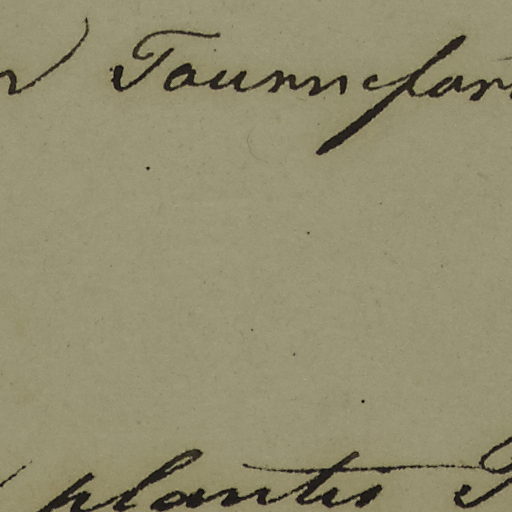 Tournefor
plantis